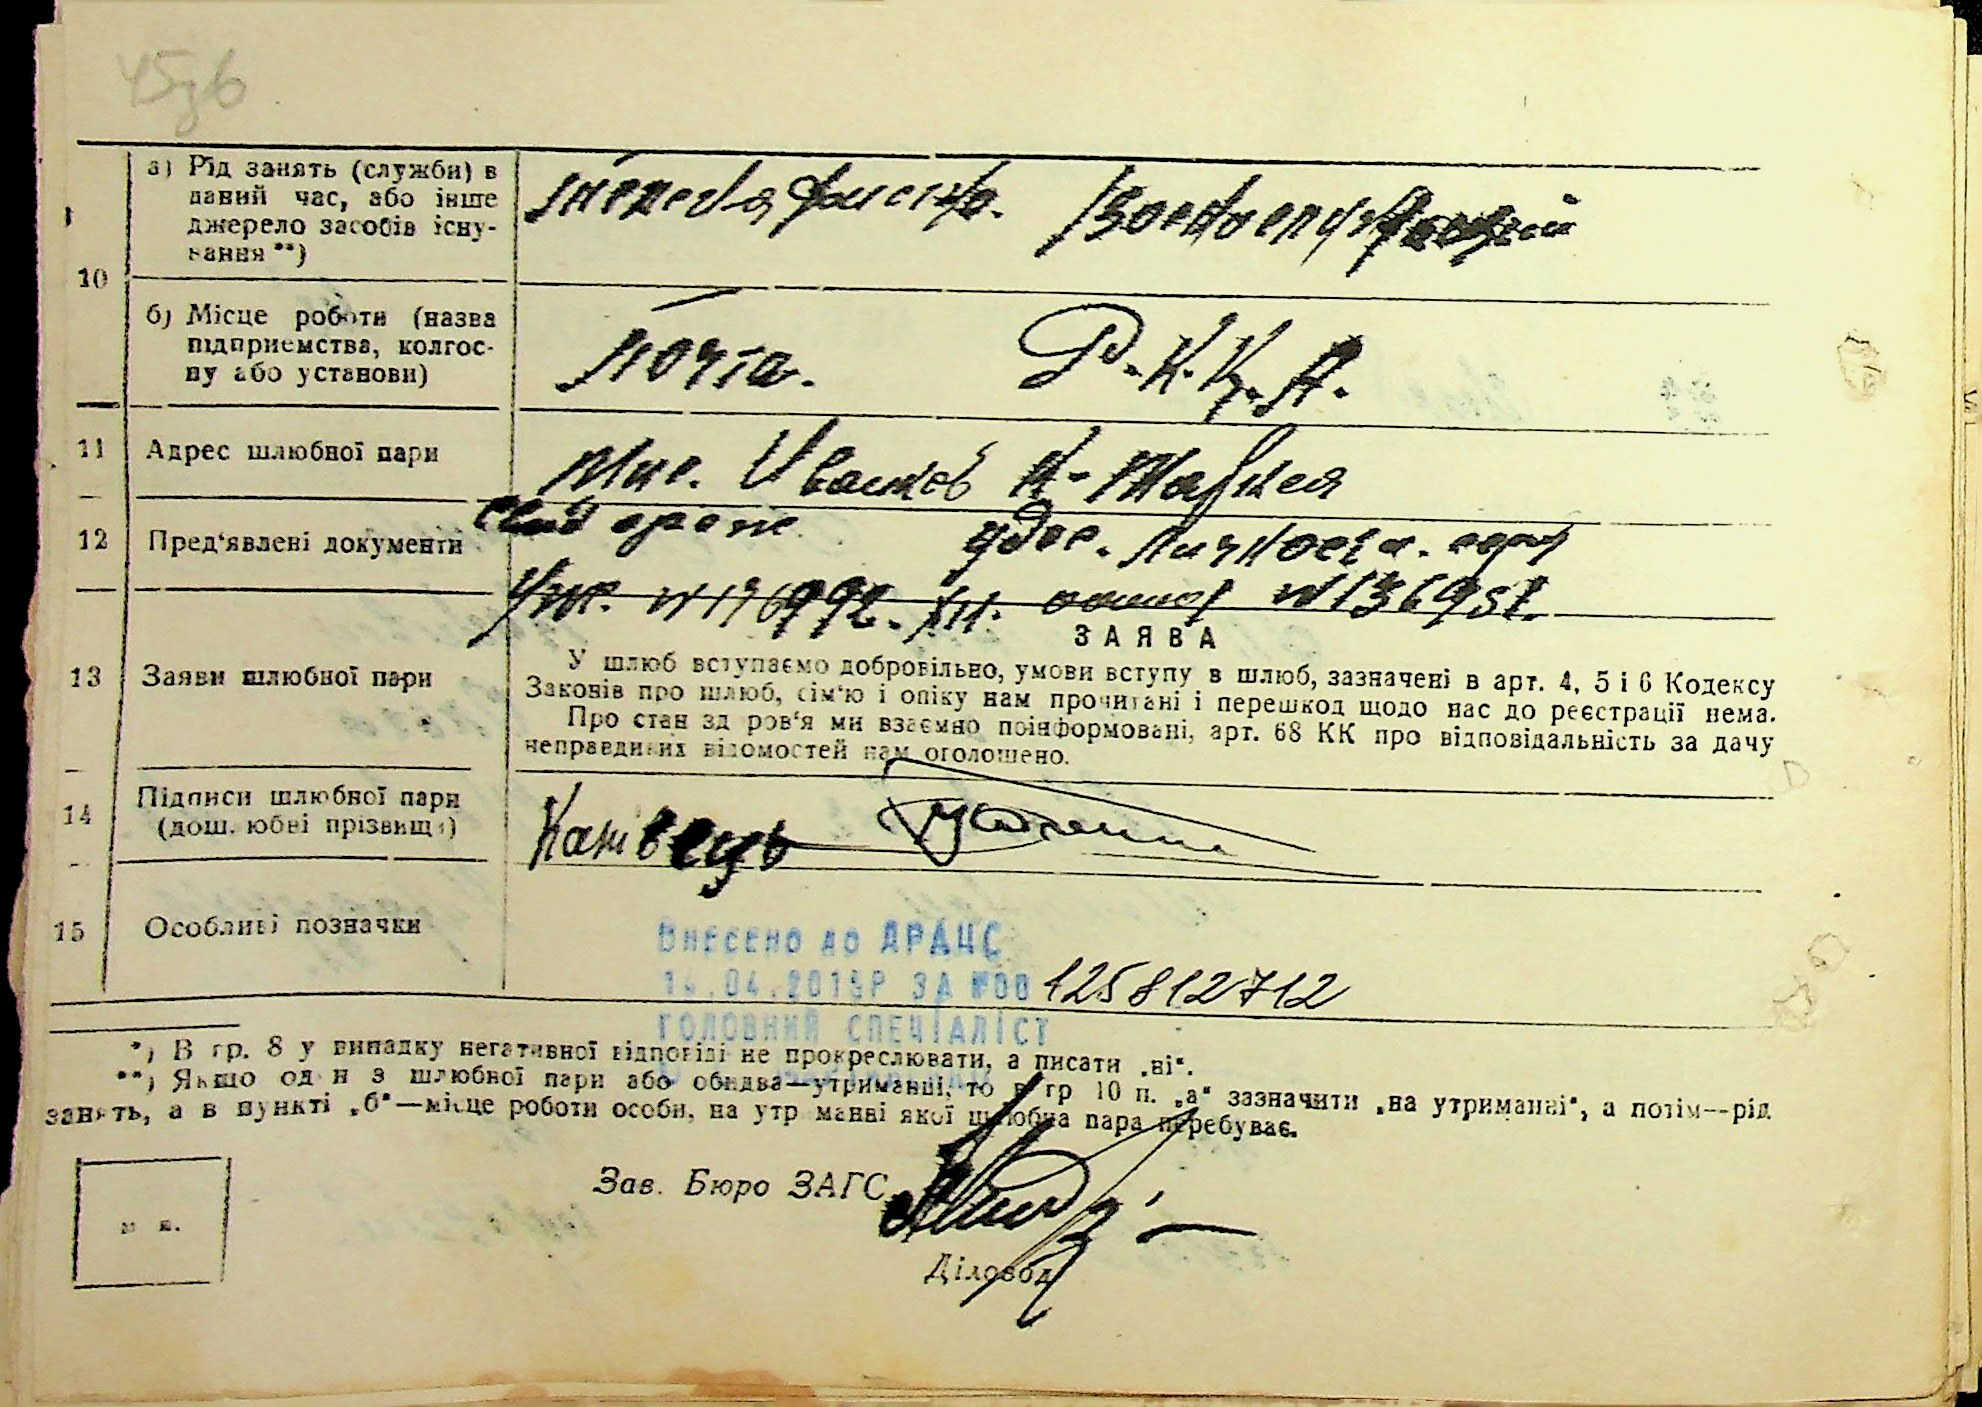 45
а) Рід занять (служби) в
даний час, або інше
джерело засобів існу-
вання **)
телеграфистка. Военнослужащий
10
б) Місце роботи (назва
підприємства, колгос-
пу або установи)
почта. Р.К.К.А.
11 Адрес шлюбної пари
12 Пред'явлені документи
удос. личности
№136951.
ЗАЯВА
13 Заяви шлюбної пари
У шлюб вступаємо добровільно, умови вступу в шлюб, зазначені в арт. 4, 5 і 6 Кодексу
Законів про шлюб, сім'ю і опіку нам прочитані і перешкод щодо нас до реєстрації нема.
Про стан здоров'я ми взаємно поінформовані, арт. 68 КК про відповідальність за дачу
неправдивих відомостей нам оголошено.
14 Підписи шлюбної пари
(дошлюбні прізвища)
Канівець
15 Особливі позначки
Внесено до ДРАЦС
04.2019Р ЗА №00 125812712
ГОЛОВНИЙ СПЕЦІАЛІСТ
*) В гр. 8 у випадку негативної відповіді не прокреслювати, а писати „ні“.
**) Якщо один з шлюбної пари або обидва—утриманці, то в гр 10 п. „а“ зазначити „на утриманні“, а потім—рід
занять, а в пункті „б“—місце роботи особи, на утриманні якої шлюбна пара перебуває.
Зав. Бюро ЗАГС
м п.
Діловод